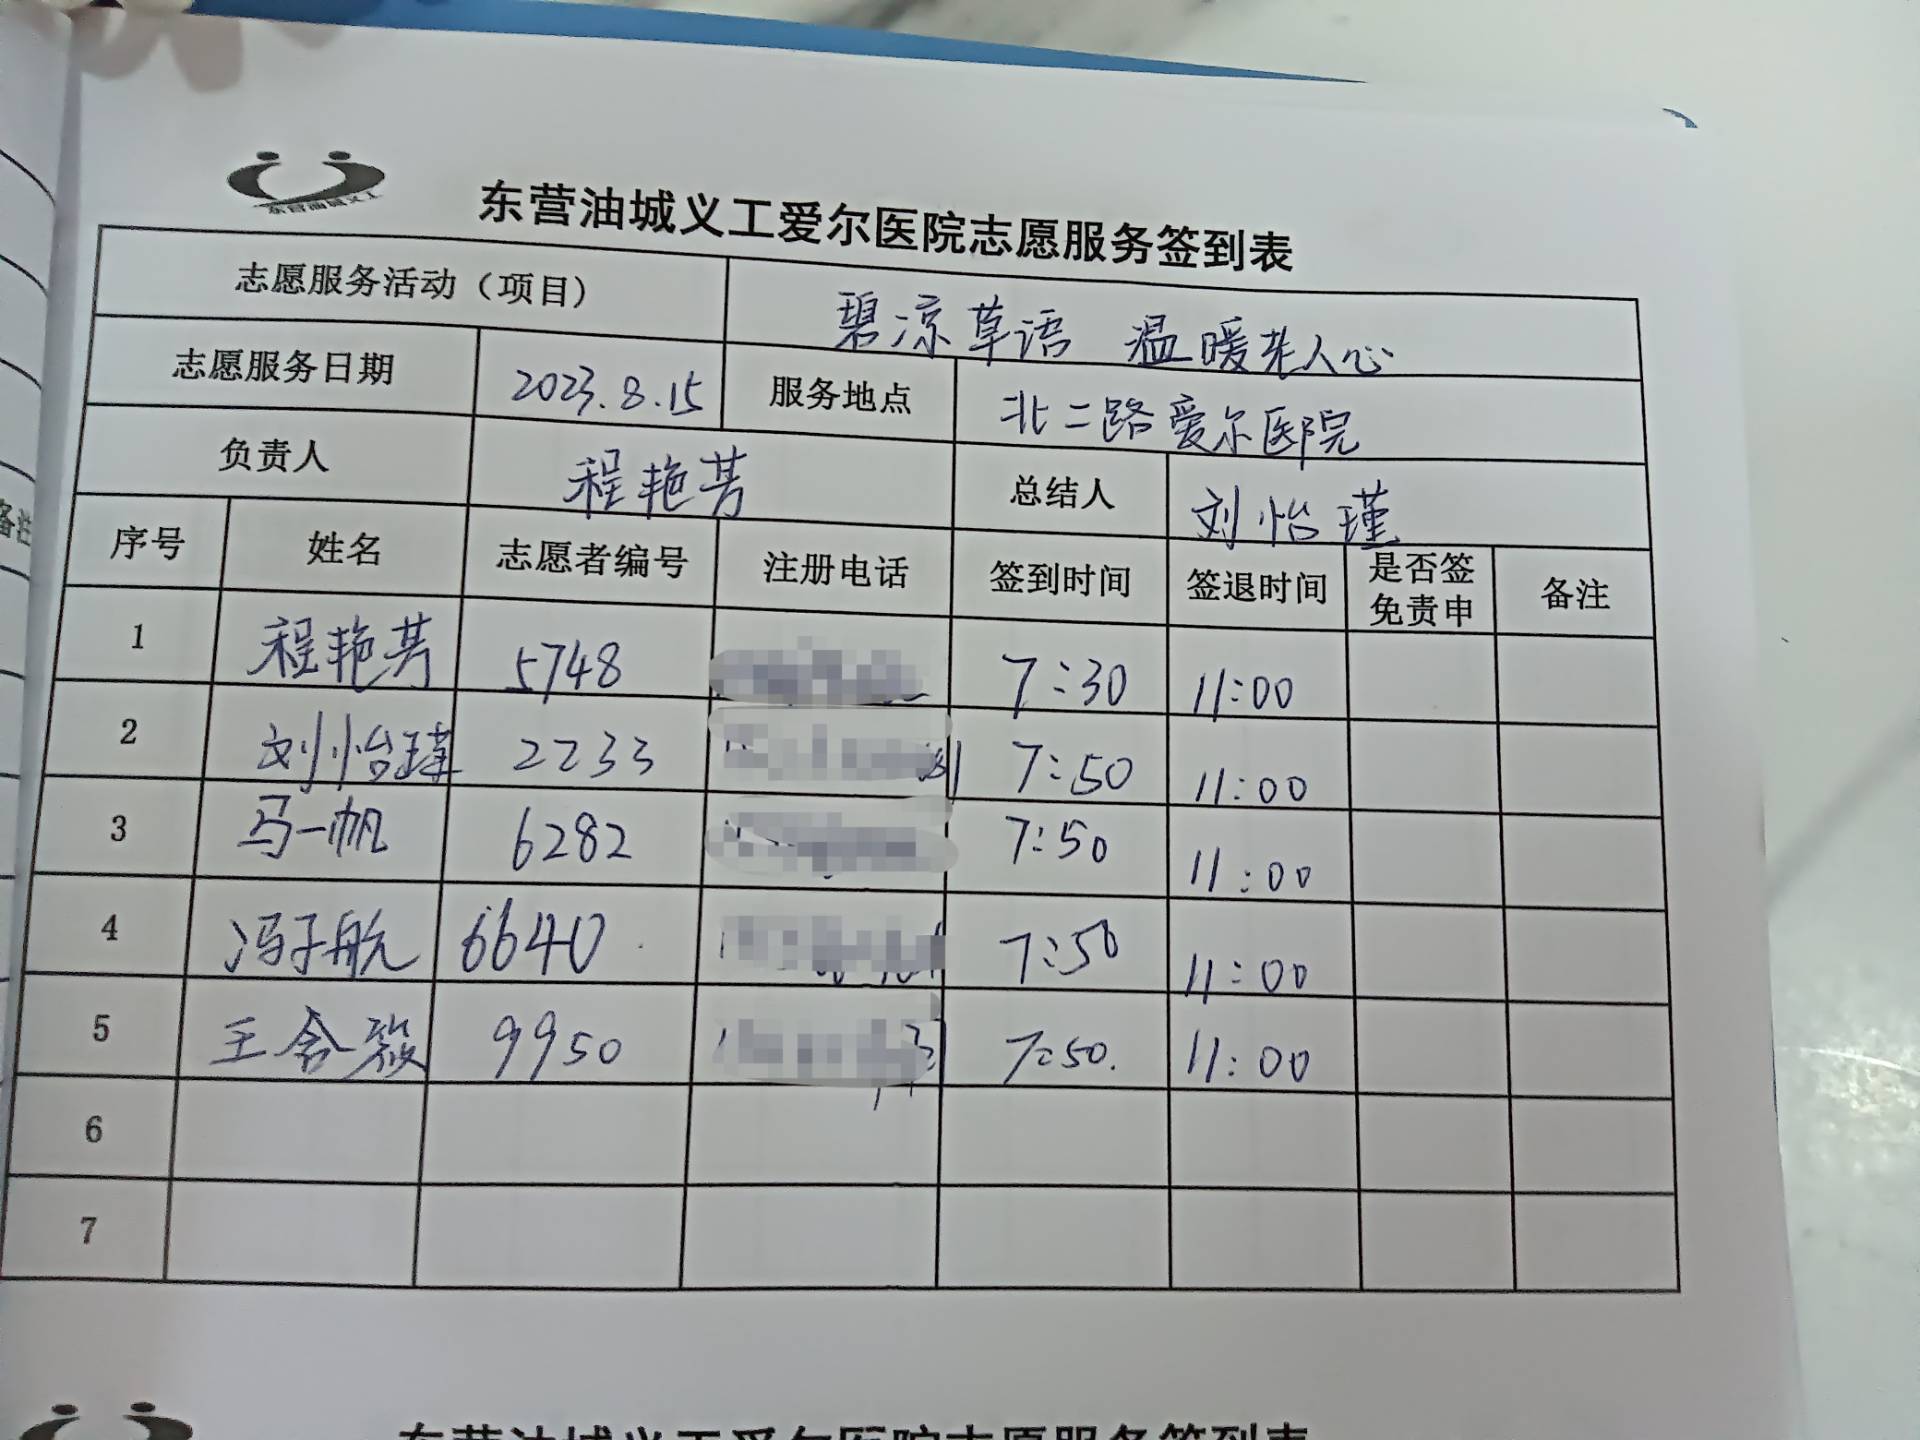 东营油城义工
东营油城义工爱尔医院志愿服务签到表
志愿服务活动（项目） 碧凉草语 温暖老人心
志愿服务日期 2023.8.15 服务地点 北二路爱尔医院
负责人 程艳芳 总结人 刘怡瑾
序号 姓名 志愿者编号 注册电话 签到时间 签退时间 是否签免责申 备注
1 程艳芳 5748 7:30 11:00
2 刘怡瑾 2233 7:50 11:00
3 马一帆 6282 7:50 11:00
4 冯子航 6640 7:50 11:00
5 王含筱 9950 7:50. 11:00
6
7
备注
东营油城义工爱尔医院志愿服务签到表